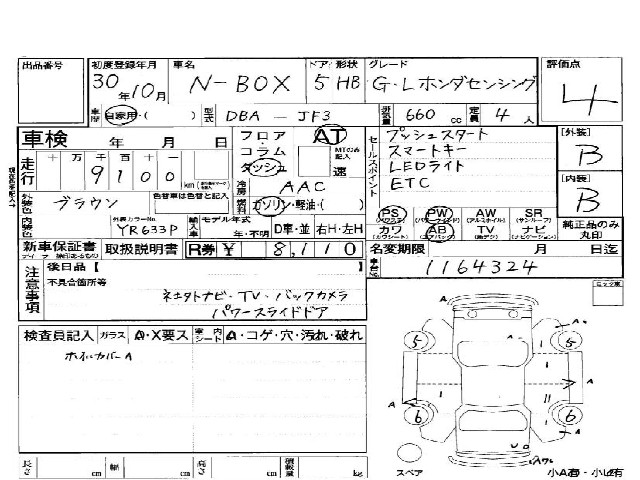 出品番号
初度登録年月 車名 ドア 形状 グレード 評価点
30年10月 N-BOX 5 HB G・Lホンダセンシング 4
車歴 自家用・( ) 型式 DBA-JF3 排気量 660cc 定員 4人
車検 年 月 日 フロア・コラム ダッシュ AT MTのみ記入 速
セールスポイント プッシュスタート
スマートキー
LEDライト
ETC
[外装] B
[内装] B
走行 十 万 千 百 十 一
9100 km
冷房 AAC
外装色 ブラウン 色替車は色替と記入
燃料 ガソリン・軽油・( )
内装色 外装カラーNo. YR633P 輸入車 モデル年式 年・不明 D車・並 右H・左H
PS PW AW SR
カワ AB TV ナビ
(カワシート) (エアバック) (地デジ) (ナビゲーション)
純正品のみ丸印
新車保証書 取扱説明書 R券 ¥ 8,110
名変期限 月 日迄
車台No. 1164324
注意事項 後日品 [ ]
不具合箇所等
ネエタトナビ・TV・バックカメラ
パワースライドドア
検査員記入 ガラス A・X要ス 車内シート A・コゲ・穴・汚れ・破れ
ホイルカバーA
長さ cm 幅 cm 高さ cm 積載量 kg
5 5
6 6
A
スペア
小A有・小U有